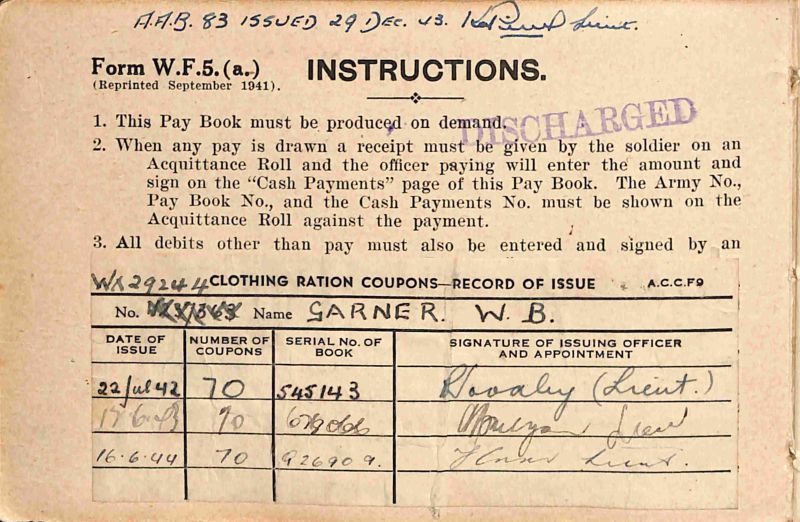 A.A.B. 83 ISSUED 29 DEC. 43. Lieut.
Form W.F.5.(a.) INSTRUCTIONS.
(Reprinted September 1941).
DISCHARGED
1. This Pay Book must be produced on demand.
2. When any pay is drawn a receipt must be given by the soldier on an
Acquittance Roll and the officer paying will enter the amount and
sign on the "Cash Payments" page of this Pay Book. The Army No.,
Pay Book No., and the Cash Payments No. must be shown on the
Acquittance Roll against the payment.
3. All debits other than pay must also be entered and signed by an
WX29244 CLOTHING RATION COUPONS—RECORD OF ISSUE A.C.C.F9
No. Name GARNER. W. B.
DATE OF ISSUE NUMBER OF COUPONS SERIAL No. OF BOOK SIGNATURE OF ISSUING OFFICER AND APPOINTMENT
22 Jul 42 70 545143 (Lieut.)
70
16.6.44 70 926909. Lieut.